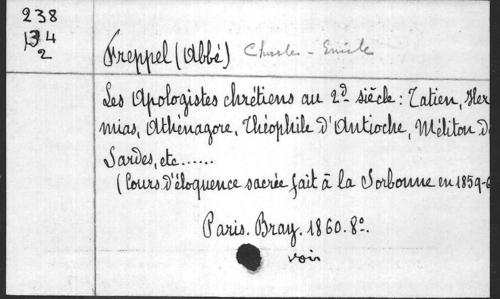 238
134
2
Freppel (Abbé) Charles - Emile
Les Apologistes chrétiens au 2d siècle : Tatien, Her
mias, Athénagore, Théophile d'Antioche, Méliton de
Sardes, etc......
(Cours d'éloquence sacrée fait à la Sorbonne en 1859-6
Paris. Bray. 1860. 8o.
voir